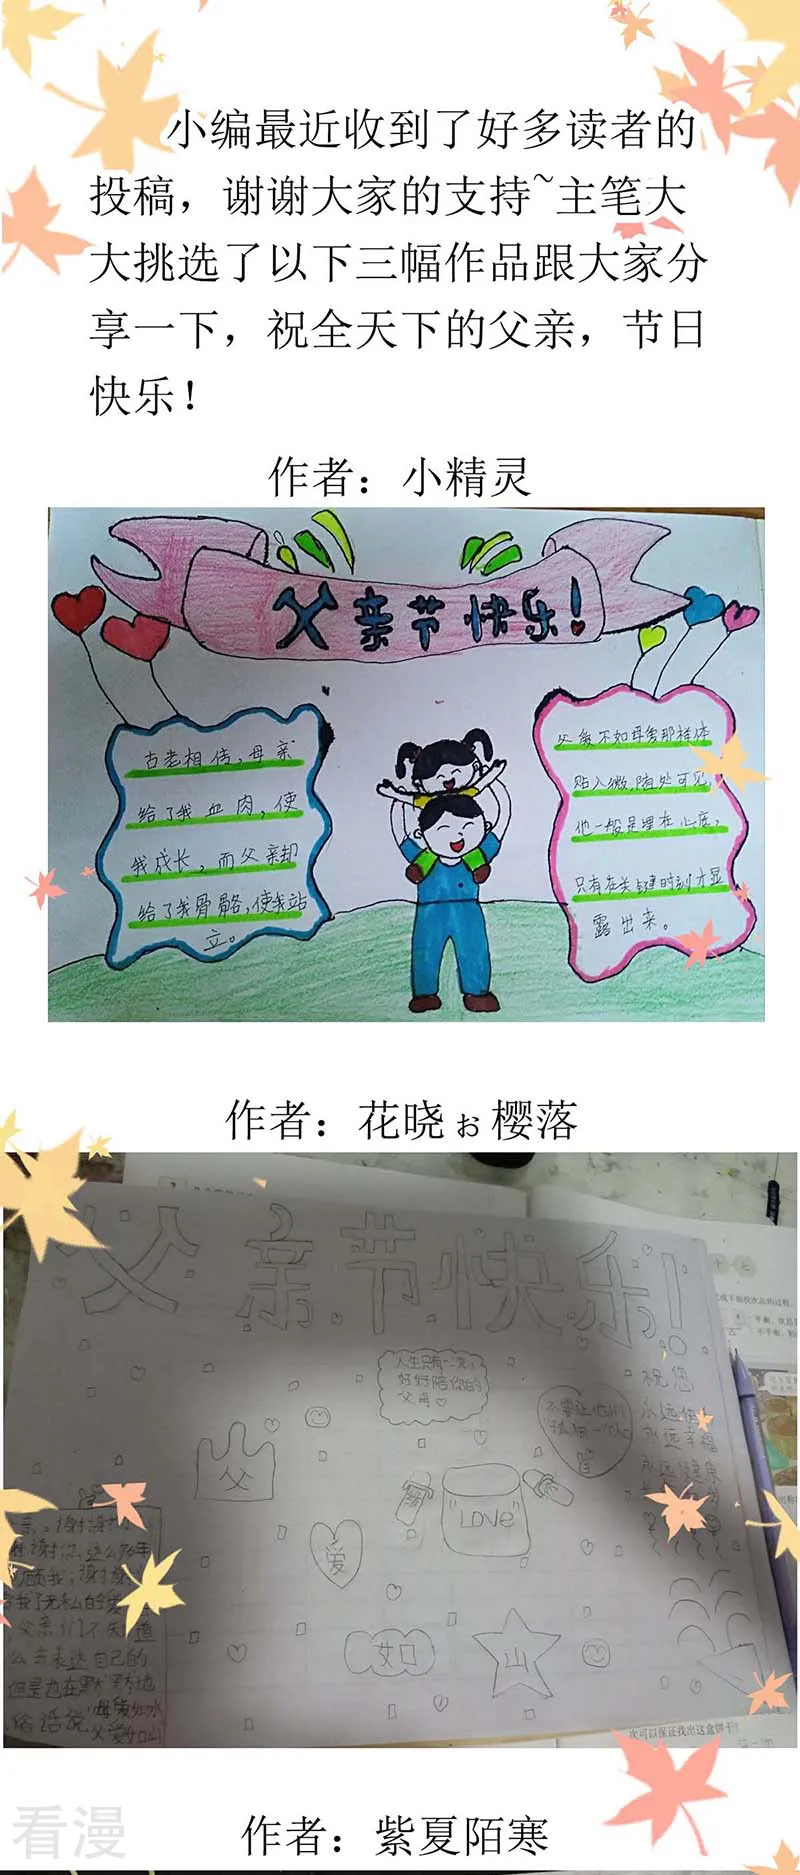 小编最近收到了好多读者的
投稿，谢谢大家的支持~主笔大
大挑选了以下三幅作品跟大家分
享一下，祝全天下的父亲，节日
快乐！
作者：小精灵
父亲节快乐！
古老相传，母亲
给了我血肉，使
我成长，而父亲却
给了我骨骼，使我站
立。
父爱不如母爱那样体
贴入微，随处可见，
他一般是埋在心底，
只有在关键时刻才显
露出来。
作者：花晓ぉ樱落
父亲节快乐！
人生只有一次，
好好陪你的
父母
祝您
永远
永远幸福
永远健康
父
"LOVE"
爱
如
山
么去表达自己的
俗话说
母爱如水
父爱如山
次可以保证找出这盒饼干？
看漫
作者：紫夏陌寒